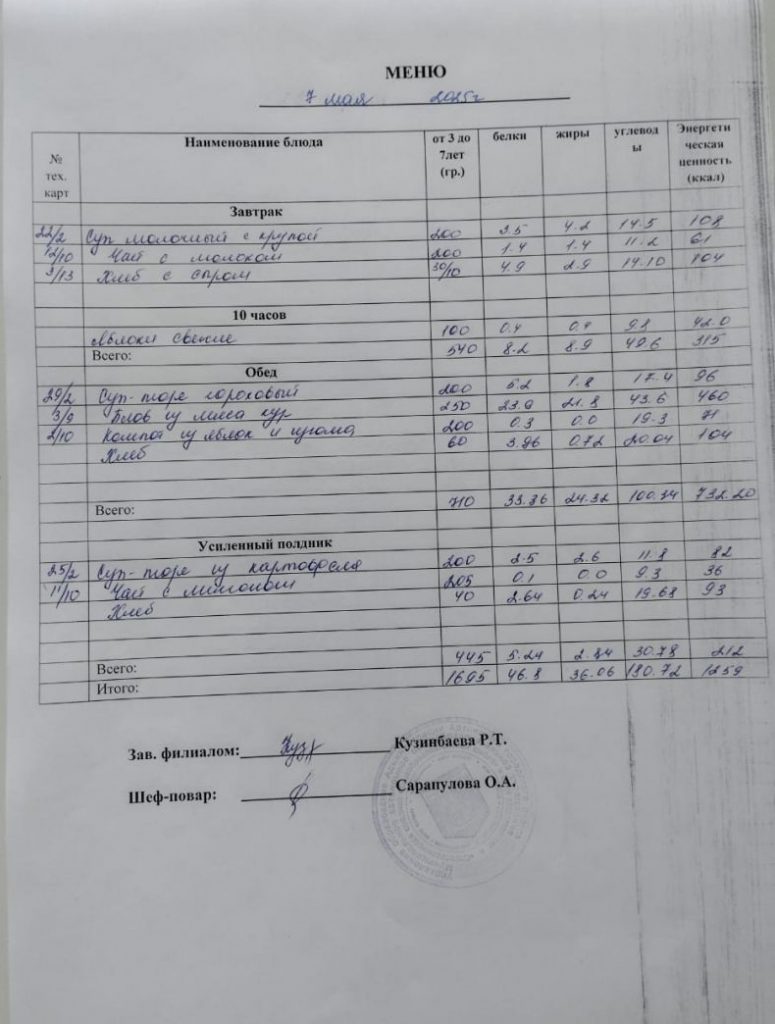 МЕНЮ
7 мая 2025г
№ тех. карт Наименование блюда от 3 до 7лет (гр.) белки жиры углеводы Энергетическая ценность (ккал)
Завтрак
22/2 Суп молочный с крупой 200 3.5 4.2 14.5 108
12/10 Чай с молоком 200 1.4 1.4 11.2 61
3/13 Хлеб с сыром 30/10 4.9 2.9 14.10 104
10 часов
Яблоки свежие 100 0.4 0.4 9.8 42.0
Всего: 540 8.2 8.9 49.6 315
Обед
29/2 Суп-пюре гороховый 200 5.2 1.8 17.4 96
3/9 Плов из мяса кур 250 23.9 21.8 43.6 460
2/10 Компот из яблок и изюма 200 0.3 0.0 19.3 71
Хлеб 60 3.96 0.72 20.04 104
Всего: 710 33.36 24.32 100.34 732.20
Усиленный полдник
25/2 Суп-пюре из картофеля 200 2.5 2.6 11.8 82
11/10 Чай с лимоном 205 0.1 0.0 9.3 36
Хлеб 40 2.64 0.24 19.68 93
Всего: 445 5.24 2.84 30.78 212
Итого: 1695 46.8 36.06 180.72 1259
Зав. филиалом: Кузинбаева Р.Т.
Шеф-повар: Сарапулова О.А.